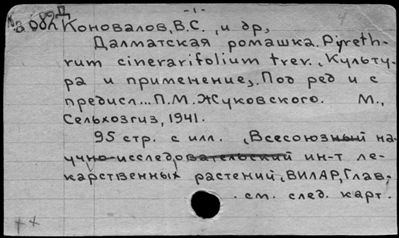 -1-
Коновалов, В.С. , и др,
Далматская ромашка. Pyreth-
rum cinerarifolium trev. , Культу-
ра и применение, Под ред и с
предисл... П.М. Жуковского. М.,
Сельхозгиз, 1941.
95 стр. с илл. , Всесоюзный на-
учно-исследовательский ин-т ле-
карственных растений, ВИЛАР, Глав-
. см. след. карт.